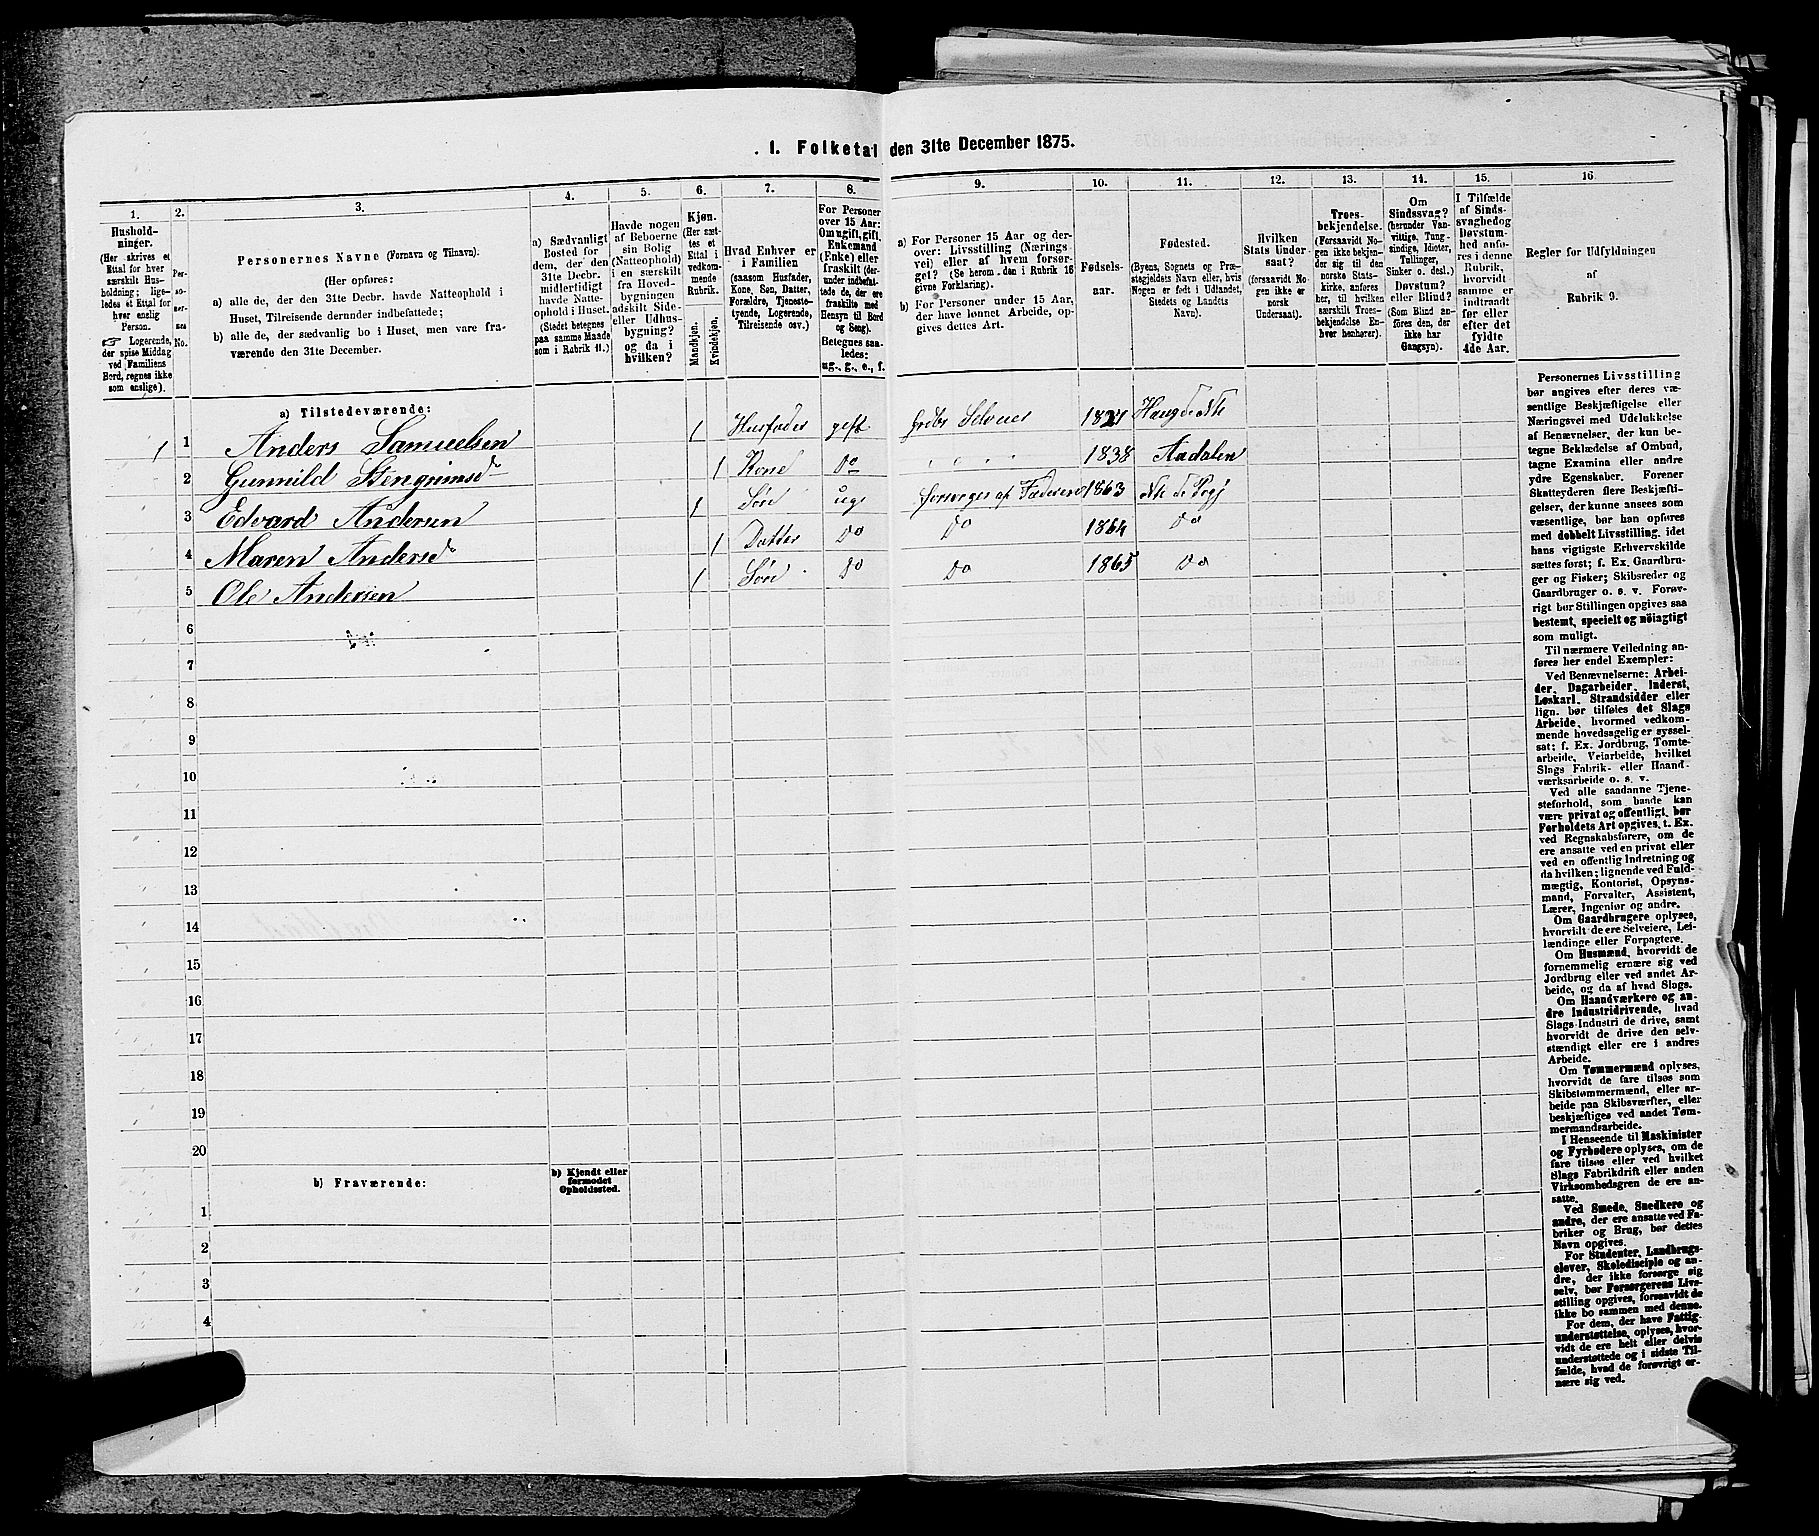 1. Folketal den 31te December 1875.
1.
Hushold-
ninger.
(Her skrives et
Ettal for hver
særskilt Hus-
holdning; lige-
ledes et Ettal for
hver enslig
Person.
☞ Logerende,
der spise Middag
ved Familiens
Bord, regnes ikke
som enslige).
2.
Per-
so-
ner-
nes
No.
3.
Personernes Navne (Fornavn og Tilnavn).
(Her opføres:
a) alle de, der den 31te Decbr. havde Natteophold i
Huset, Tilreisende derunder indbefattede;
b) alle de, der sædvanlig bo i Huset, men vare fra-
værende den 31te December.
4.
a) Sædvanligt
Bosted for
dem, der den
31te Decbr.
midlertidigt
havde Natte-
ophold i Huset.
(Stedet betegnes
paa samme Maade
som i Rubrik 11.)
5.
Havde nogen
af Beboerne
sin Bolig
(Natteophold)
i en særskilt
fra Hoved-
bygningen
adskilt Side-
eller Udhus-
bygning?
og da i
hvilken?
6.
Kjøn.
(Her sæt-
tes et
Ettal i
vedkom-
mende
Rubrik.
Mandkjøn.
Kvindekjøn.
7.
Hvad Enhver er
i Familien
(saasom Husfader,
Kone, Søn, Datter,
Forældre, Tjeneste-
tyende, Logerende,
Tilreisende osv.)
8.
For Personer
over 15 Aar:
Om ugift, gift,
Enkemand
(Enke) eller
fraskilt (der-
under indbefat-
tede de, der ere
fraskilte med
Hensyn til Bord
og Seng).
Betegnes saa-
ledes:
ug., g., e., f.
9.
a) For Personer 15 Aar og der-
over: Livsstilling (Nærings-
vei) eller af hvem forsør-
get? (Se herom den i Rubrik 16
givne Forklaring).
b) For Personer under 15 Aar,
der have lønnet Arbeide, op-
gives dettes Art.
10.
Fødsels-
aar.
11.
Fødested.
(Byens, Sognets og Præ-
stegjeldets Navn eller, hvis
Nogen er født i Udlandet,
Stedets og Landets
Navn).
12.
Hvilken
Stats Under-
saat?
(forsaavidt No-
gen ikke er
norsk
Undersaat).
13.
Troes-
bekjendelse.
(Forsaavidt No-
gen ikke bekjen-
der sig til den
norske Stats-
kirke, anføres
her, til hvilken
særskilt Troes-
bekjendelse En-
hver henhører).
14.
Om
Sindssvag?
(herunder Van-
vittige, Tung-
sindige, Idioter,
Tullinger,
Sinker o. desl.)
Døvstum?
eller Blind?
(Som Blind an-
føres den, der
ikke har
Gangsyn).
15.
I Tilfælde
af Sinds-
svaghed og
Døvstum-
hed anfø-
res i denne
Rubrik,
hvorvidt
samme er
indtraadt
før eller
efter det
fyldte
4de Aar.
16
Regler for Udfyldningen
af
Rubrik 9.
a) Tilstedeværende:
1 1 Anders Samuelsen 1 Husfader gift Selveier Haug
2 Gunnild 1 Kone Do 1838 Aadalen
3 Edvard Andersen 1 Søn ug. Forsørges af Faderen 1863
4 Maren Andersd 1 Datter Do Do 1864 Do
5 Ole Andersen 1 Søn Do Do 1865 Do
6
7
8
9
10
11
12
13
14
15
16
17
18
19
20
b) Fraværende:
b) Kjendt eller
formodet
Opholdssted.
1
2
3
4
Personernes Livsstilling
bør angives efter deres væ-
sentlige Beskjæftigelse eller
Næringsvei med Udelukkelse
af Benævnelser, der kun be-
tegne Beklædelse af Ombud,
tagne Examina eller andre
ydre Egenskaber. Forener
Skatteyderen flere Beskjæfti-
gelser, der kunne ansees som
væsentlige, bør han opføres
med dobbelt Livsstilling, idet
hans vigtigste Erhvervskilde
sættes først; f. Ex. Gaardbru-
ger og Fisker; Skibsreder og
Gaardbruger o. s. v. Forøv-
rigt bør Stillingen opgives saa
bestemt, specielt og nøiagtigt
som muligt.
Til nærmere Veiledning an-
føres her endel Exempler:
Ved Benævnelserne: Arbei-
der, Dagarbeider, Inderst,
Løskarl, Strandsidder eller
lign. bør tilføies det Slags
Arbeide, hvormed vedkom-
mende hovedsagelig er syssel-
sat; f. Ex. Jordbrug, Tomte-
arbeide, Veiarbeide, hvilket
Slags Fabrik- eller Haand-
værksarbeide o. s. v.
Ved alle saadanne Tjene-
steforhold, som baade kan
være privat og offentligt, bør
Forholdets Art opgives, t. Ex.
ved Regnskabsførere, om de
ere ansatte ved en privat eller
ved en offentlig Indretning og
da hvilken; lignende ved Fuld-
mægtig, Kontorist, Opsyns-
mand, Forvalter, Assistent,
Lærer, Ingeniør og andre.
Om Gaardbrugere oplyses,
hvorvidt de ere Selveiere, Lei-
lændinge eller Forpagtere.
Om Husmænd, hvorvidt de
fornemmelig ernære sig ved
Jordbrug eller ved andet Ar-
beide, og da af hvad Slags.
Om Haandværkere og an-
dre Industridrivende, hvad
Slags Industri de drive, samt
hvorvidt de drive den selv-
stændigt eller ere i andres
Arbeide.
Om Tømmermænd oplyses,
hvorvidt de fare tilsøs som
Skibstømmermænd, eller ar-
beide paa Skibsværfter, eller
beskjæftiges ved andet Tøm-
mermandsarbeide.
I Henseende til Maskinister
og Fyrbødere oplyses, om de
fare tilsøs eller ved hvilket
Slags Fabrikdrift eller anden
Virksomhedsgren de ere an-
satte.
Ved Smede, Snedkere og
andre, der ere ansatte ved Fa-
briker og Brug, bør dettes
Navn opgives.
For Studenter, Landbrugs-
elever, Skoledisciple og an-
dre, der ikke forsørge sig
selv, bør Forsørgerens Livs-
stilling opgives, forsaavidt de
ikke bo sammen med denne.
For dem, der have Fattig-
understøttelse, oplyses, hvor-
vidt de ere helt eller delvis
understøttede og i sidste Til-
fælde, hvad de forøvrigt er-
nære sig ved.